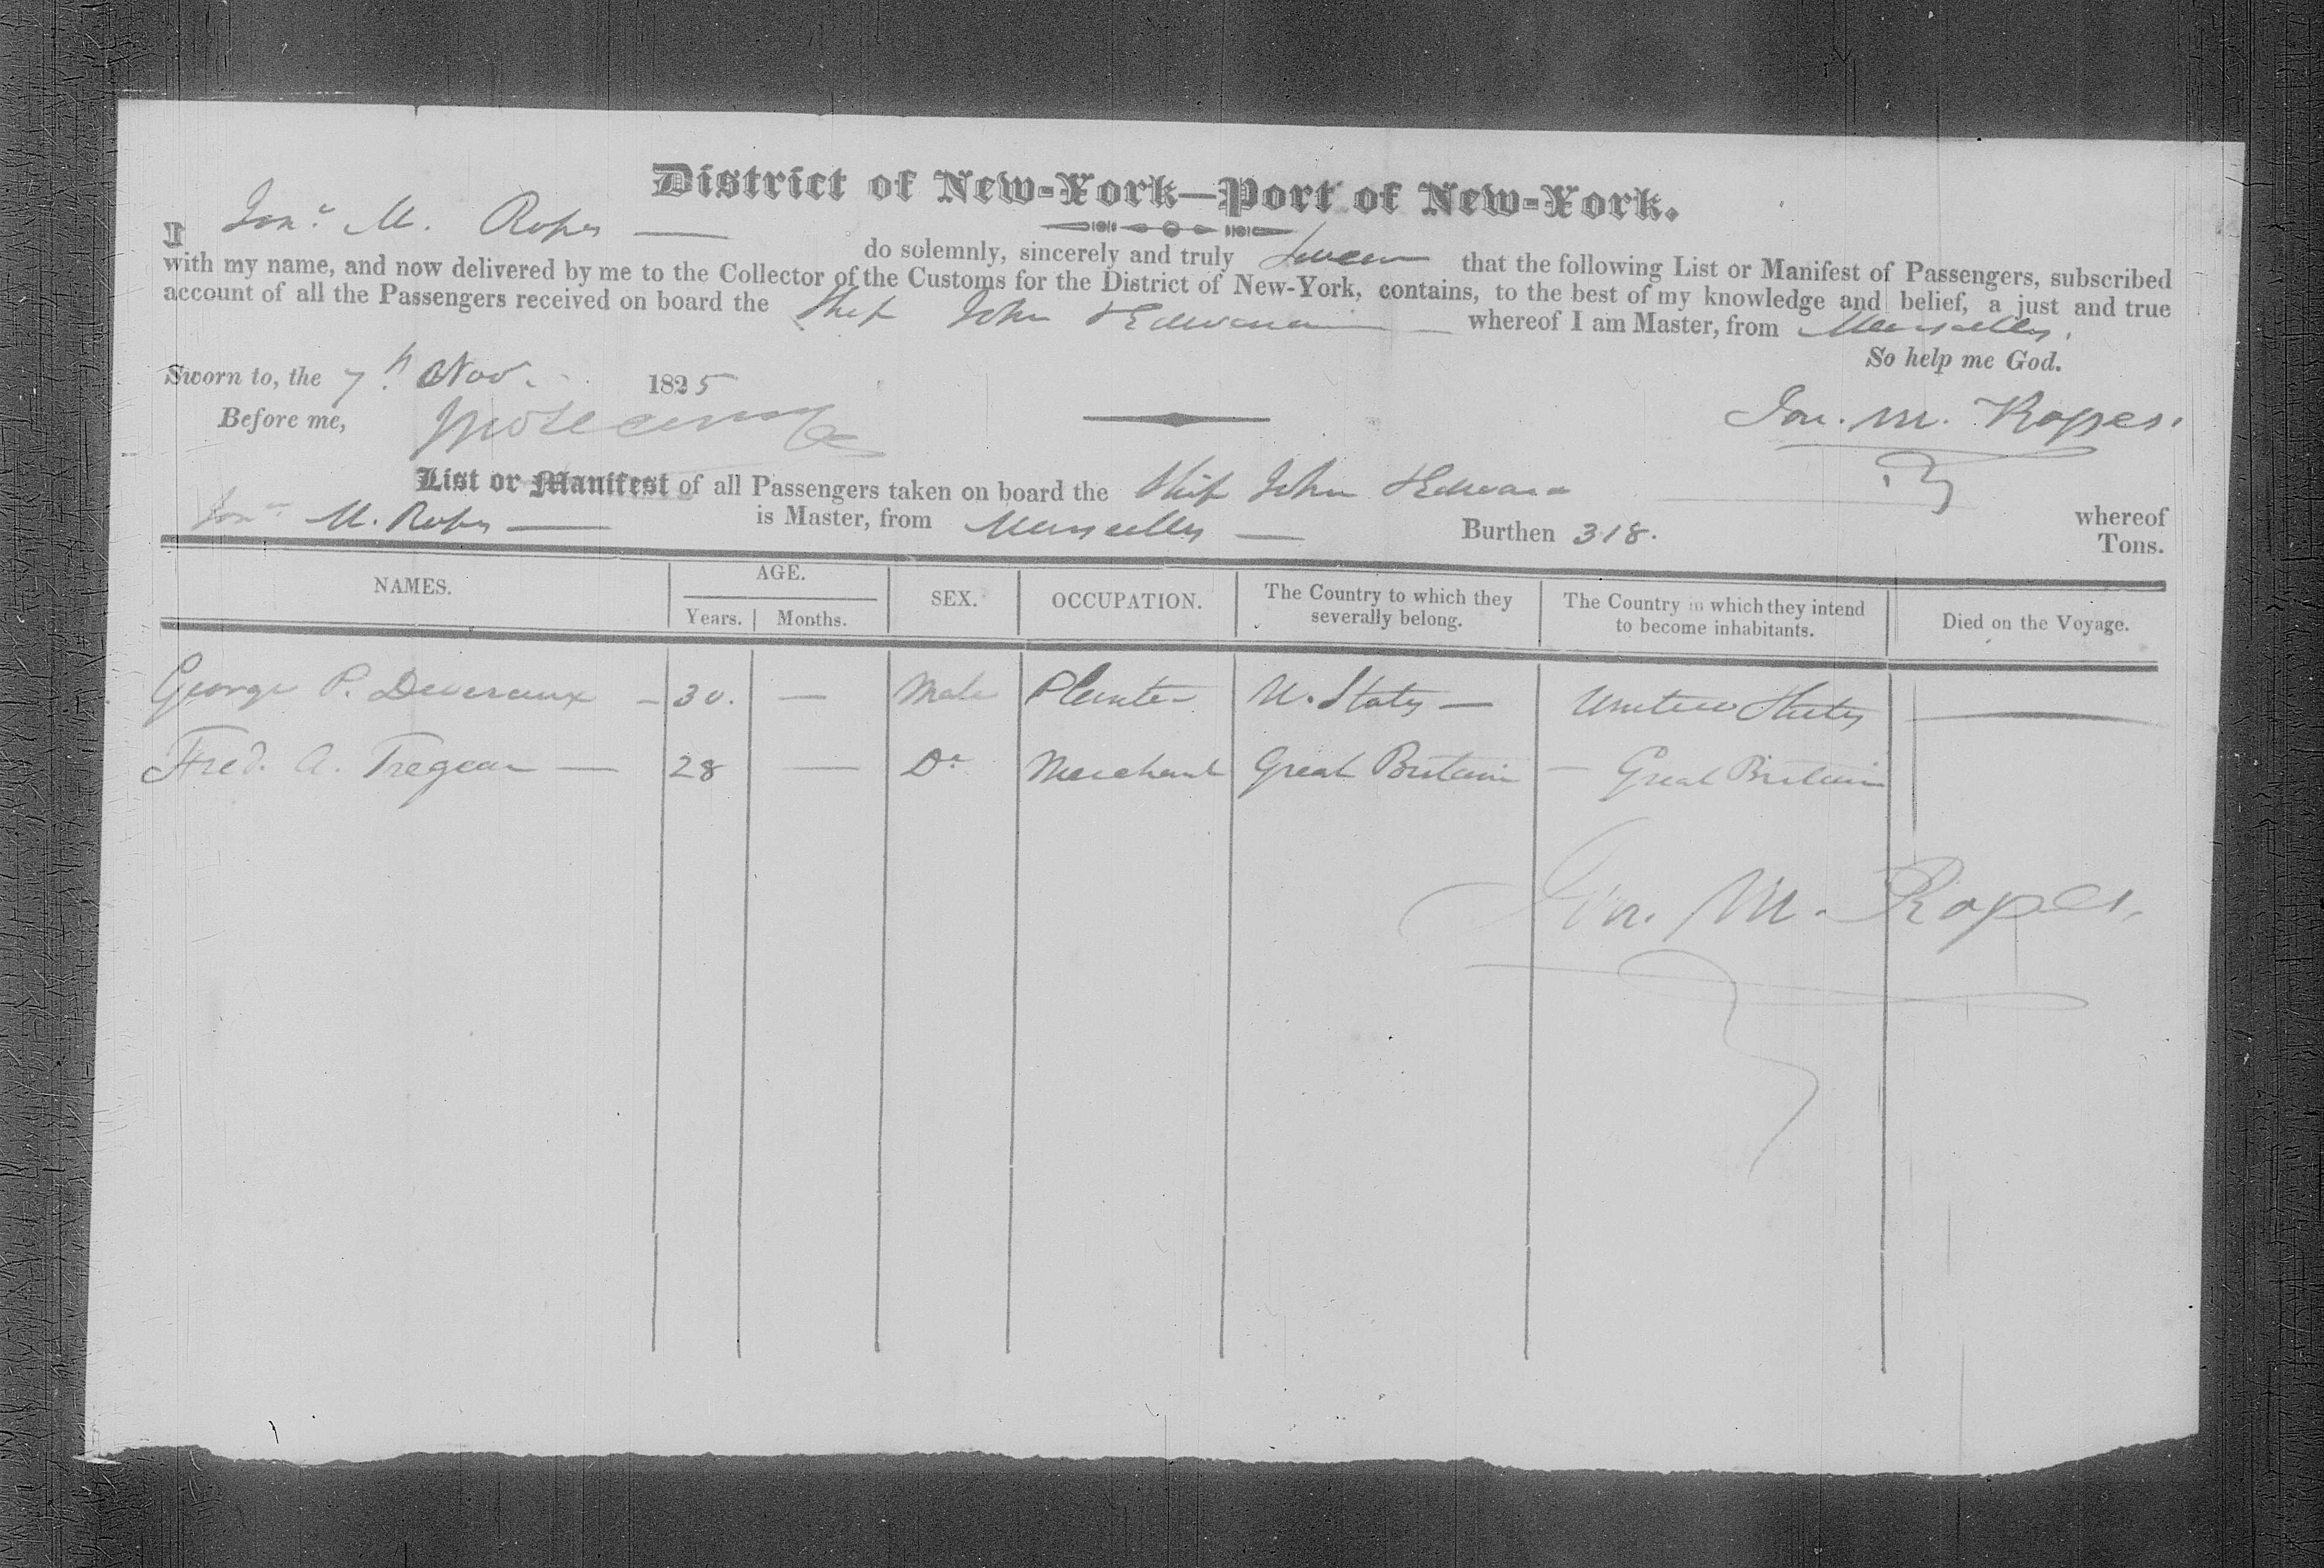 District of New-York—Port of New-York.
I Jon.ª M. Ropes — do solemnly, sincerely and truly swear that the following List or Manifest of Passengers, subscribed
with my name, and now delivered by me to the Collector of the Customs for the District of New-York, contains, to the best of my knowledge and belief, a just and true
account of all the Passengers received on board the Ship John & Edward — whereof I am Master, from Marseilles.
So help me God.
Sworn to, the 7.th Nov. 1825
Before me,
Jon. M. Ropes.
List or Manifest of all Passengers taken on board the Ship John & Edward whereof
Jon.ª M. Ropes — is Master, from Marseilles — Burthen 318. Tons.
NAMES. AGE. Years. Months. SEX. OCCUPATION. The Country to which they severally belong. The Country in which they intend to become inhabitants. Died on the Voyage.
George P. Devereaux — 30. — Male Planter U. States — United States —
Fred. A. Tregear — 28 — Do Merchant Great Britain — Great Britain
Jon. M. Ropes.